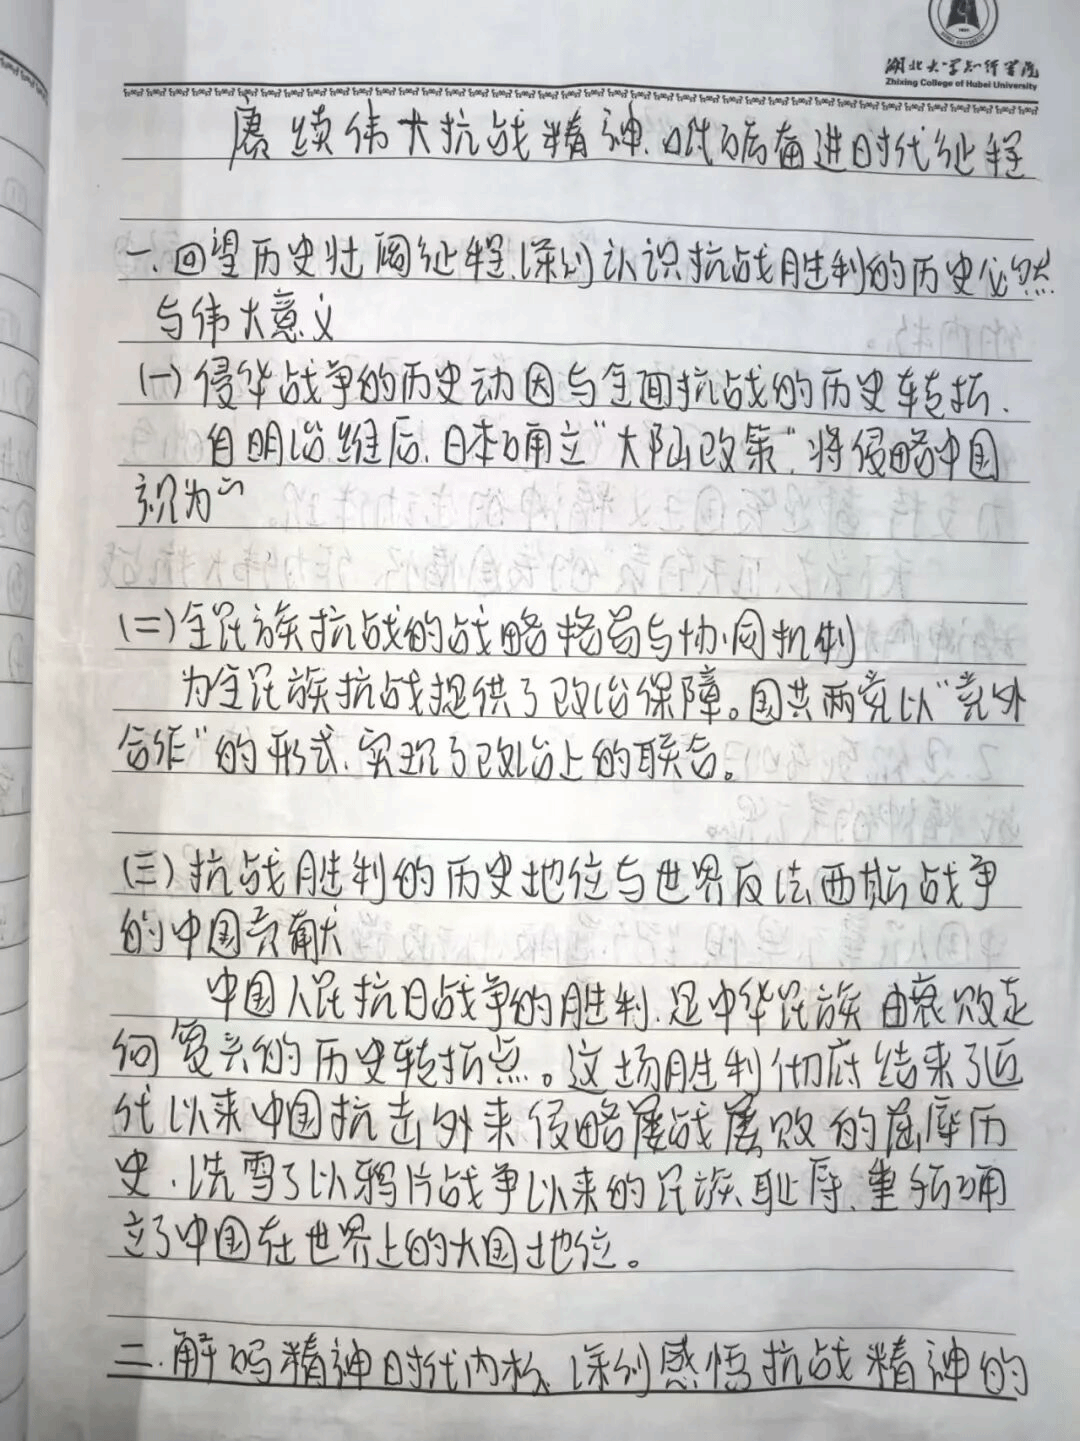 湖北大学知行学院
Zhixing College of Hubei University
赓续伟大抗战精神、砥砺奋进时代征程
一、回望历史壮阔征程、深刻认识抗战胜利的历史必然
与伟大意义
(一)侵华战争的历史动因与全面抗战的历史转折.
自明治维后、日本确立"大陆政策",将侵略中国
视为"
(二)全民族抗战的战略格局与协同机制
为全民族抗战提供了政治保障。国共两党以"党外
合作"的形式、实现了政治上的联合。
(三)抗战胜利的历史地位与世界反法西斯战争
的中国贡献
中国人民抗日战争的胜利、是中华民族由衰败走
向复兴的历史转折点。这场胜利彻底结束了近
代以来中国抗击外来侵略屡战屡败的屈辱历
史、洗雪了以鸦片战争以来的民族耻辱、重新确
立了中国在世界上的大国地位。
二、解码精神时代内核、深刻感悟抗战精神的